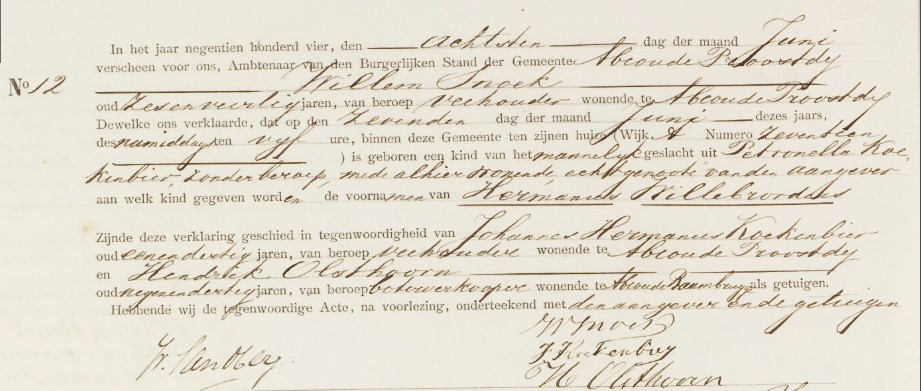 In het jaar negentien honderd vier, den achtsten dag der maand Juni
verscheen voor ons, Ambtenaar van den Burgerlijken Stand der Gemeente Abcoude Proostdy
No 12
Willem Snoek
oud zesenveertig jaren, van beroep veehouder wonende te Abcoude Proostdy
Dewelke ons verklaarde, dat op den zevenden dag der maand Juni dezes jaars,
des namiddags ten vyf ure, binnen deze Gemeente ten zijnen huize (Wijk A Numero zeventien
) is geboren een kind van het mannelyk geslacht uit Petronella Koe-
kenbier, zonder beroep, mede alhier wonende, echtgenoote van den aangever
aan welk kind gegeven worden de voornamen van Hermanus Willebrordus
Zijnde deze verklaring geschied in tegenwoordigheid van Johannes Hermanus Koekenbier
oud eenendertig jaren, van beroep veehouder wonende te Abcoude Proostdy
en Hendrik Olsthoorn
oud negenendertig jaren, van beroep boterverkooper wonende te Abcoude Baambrugge als getuigen.
Hebbende wij de tegenwoordige Acte, na voorlezing, onderteekend met den aangever en de getuigen
W Snoek
W. Sandberg.
J Koekenbier
H Olsthoorn